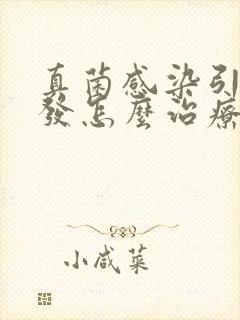 真菌感染引
發怎麼治療
小咸菜